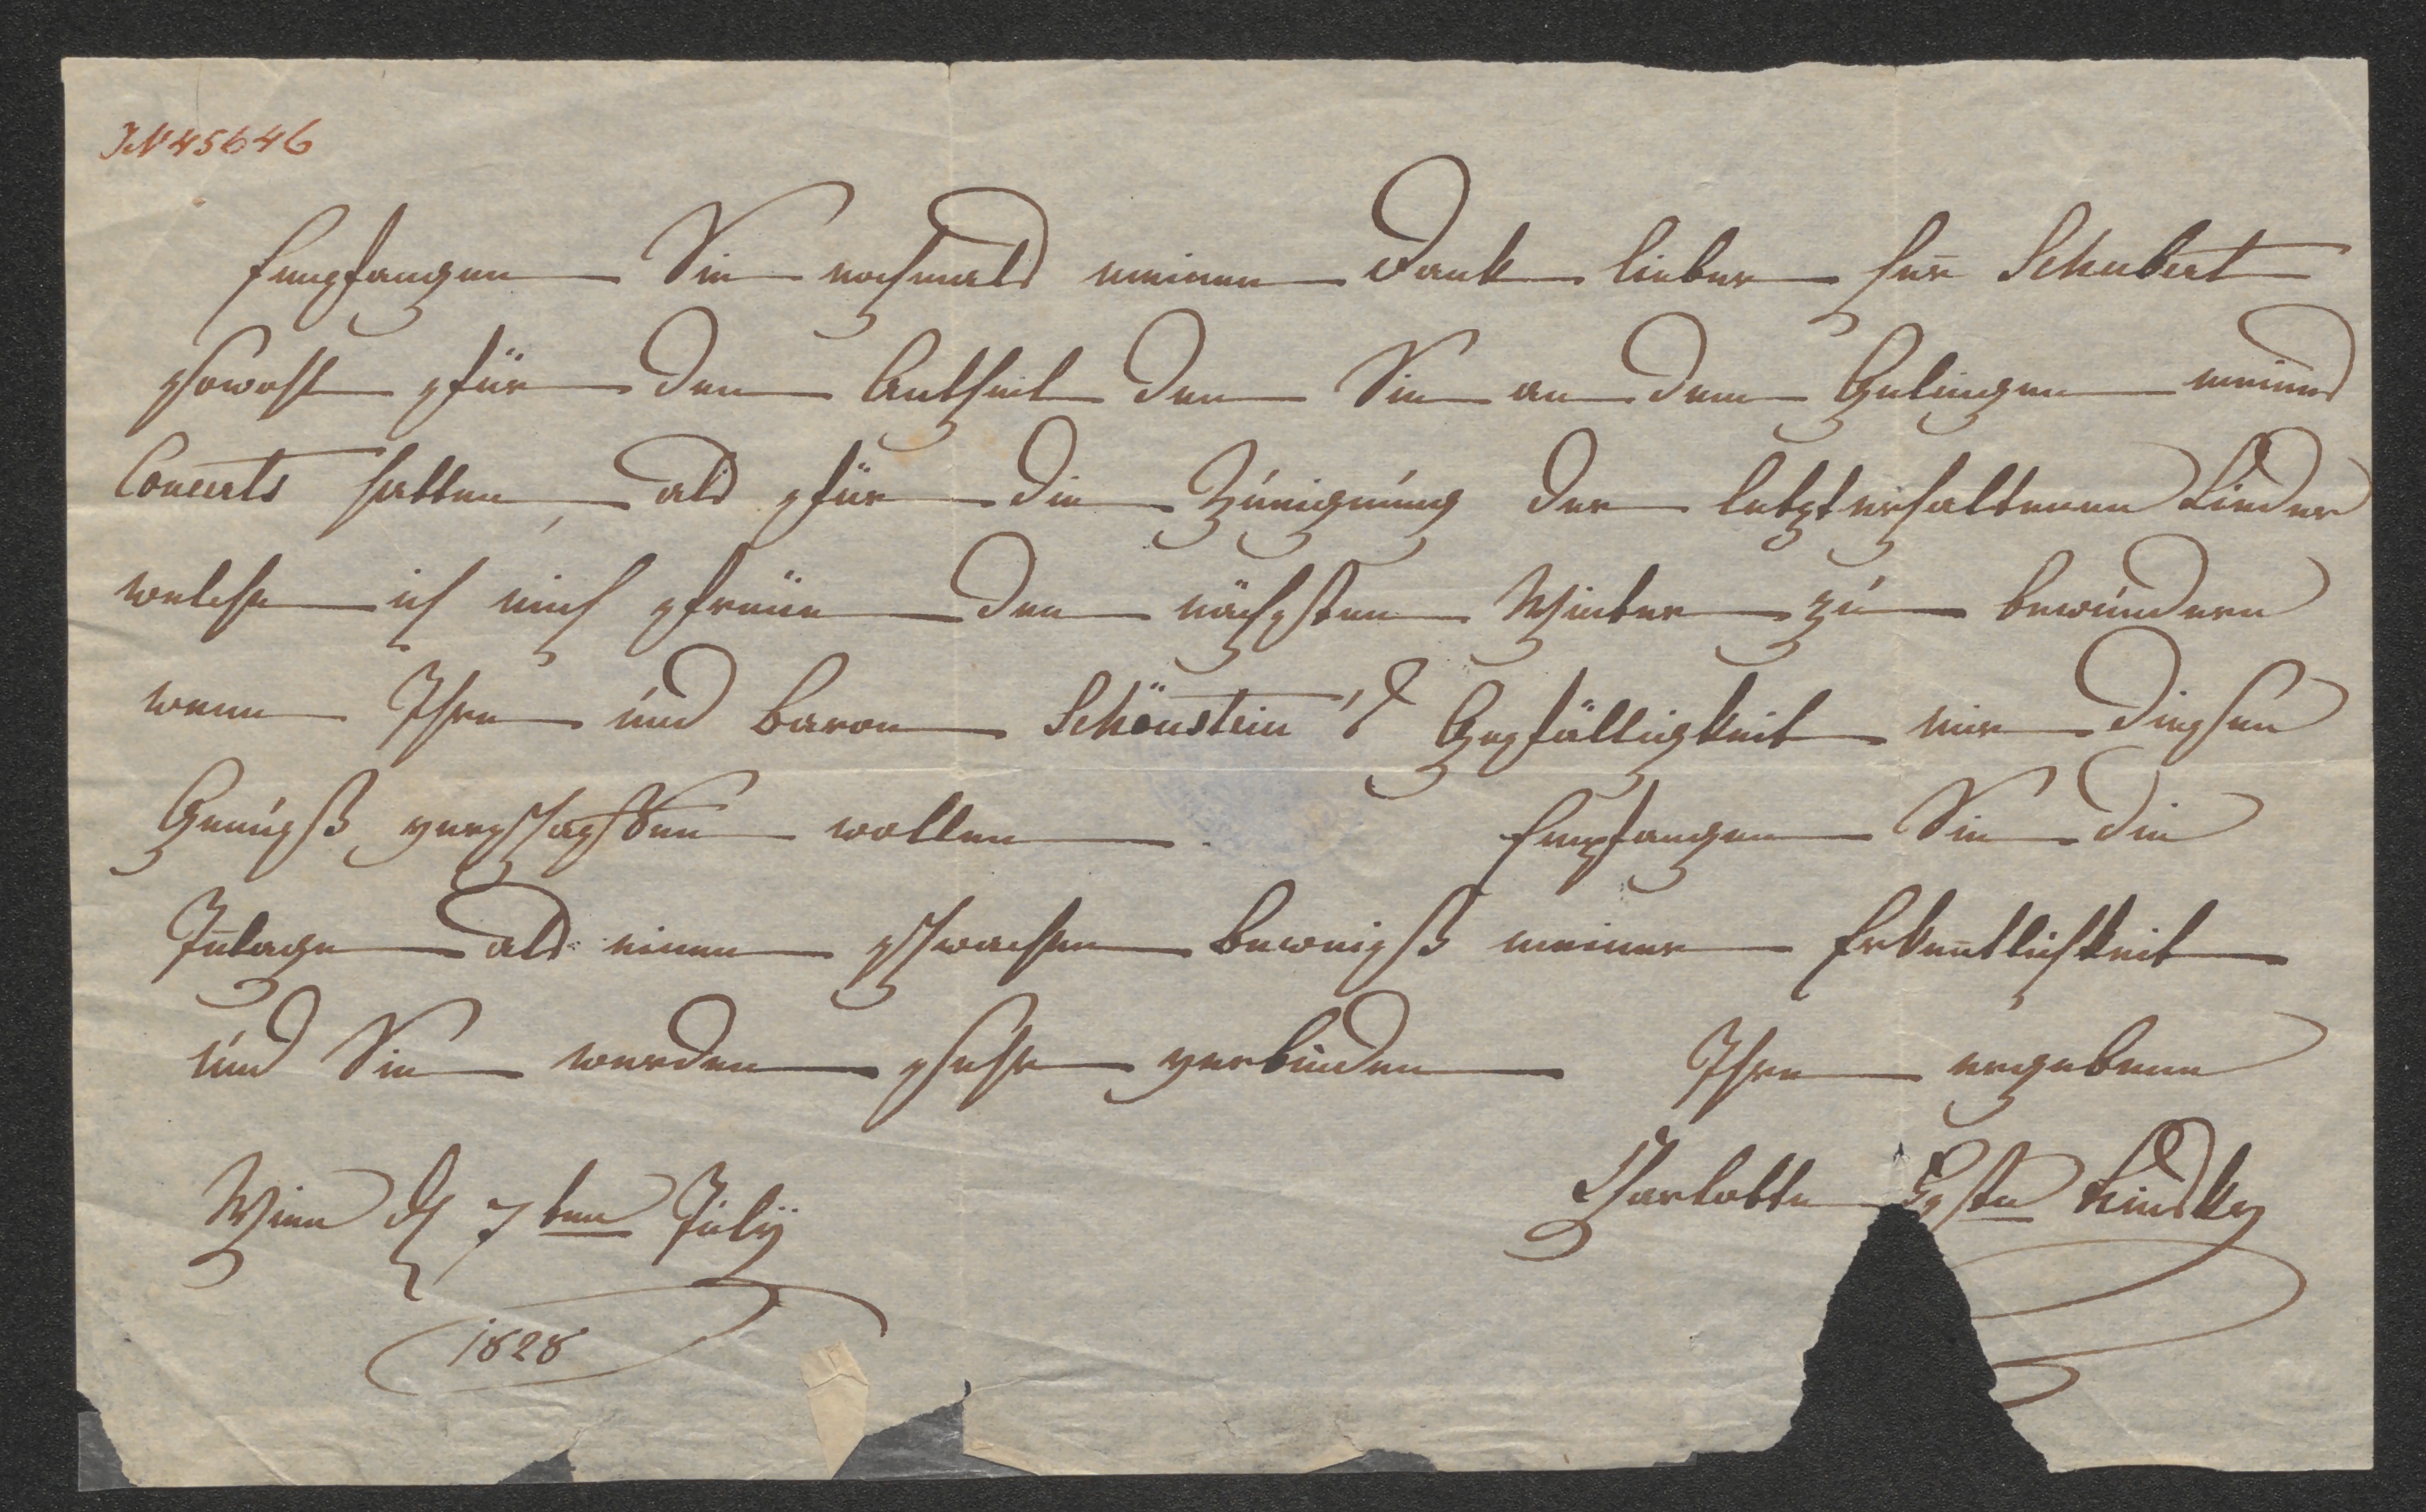 IN 45646
Empfangen Sie nochmals meinen Dank lieber Herr Schubert
sowohl für den Antheil den Sie an dem Gelingen meines
Concerts hatten, als für die Zueignung der letzterhaltenen Lieder
welche ich mich freue den nächsten Winter zu bewundern
wenn Ihre und Baron Schönstein's Gefälligkeit mir diesen
Genuß verschaffen wollen. Empfangen Sie die
Inlage als einen schwachen Beweiß meiner Erkentlichkeit
und Sie werden sehr verbinden Ihre ergebene
Charlotte Fstn Kinsky
Wien d 7ten July
1828